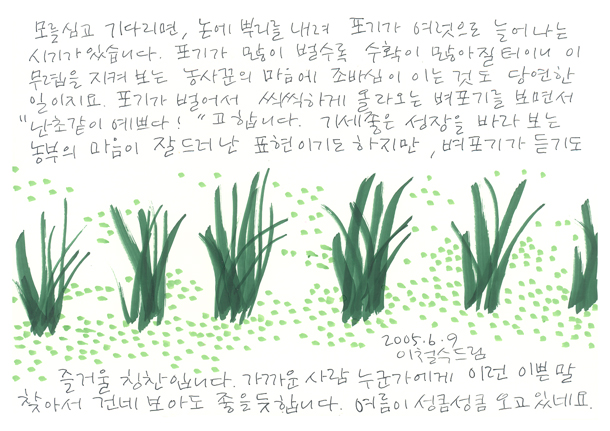 모를심고 기다리면, 논에 뿌리를 내려 포기가 여럿으로 늘어나는
시기가 있습니다. 포기가 많이 벌수록 수확이 많아질 터이니 이
무렵을 지켜 보는 농사꾼의 마음에 조바심이 이는 것도 당연한
일이지요. 포기가 벌어서 씩씩하게 올라오는 벼포기를 보면서
"난초같이 예쁘다!" 고 합니다. 기세좋은 성장을 바라 보는
농부의 마음이 잘 드러난 표현이기도 하지만, 벼포기가 듣기도
2005.6.9
이철수드림
즐거울 칭찬입니다. 가까운 사람 누군가에게 이런 이쁜 말
찾아서 건네 보아도 좋을듯합니다. 여름이 성큼성큼 오고있네요.